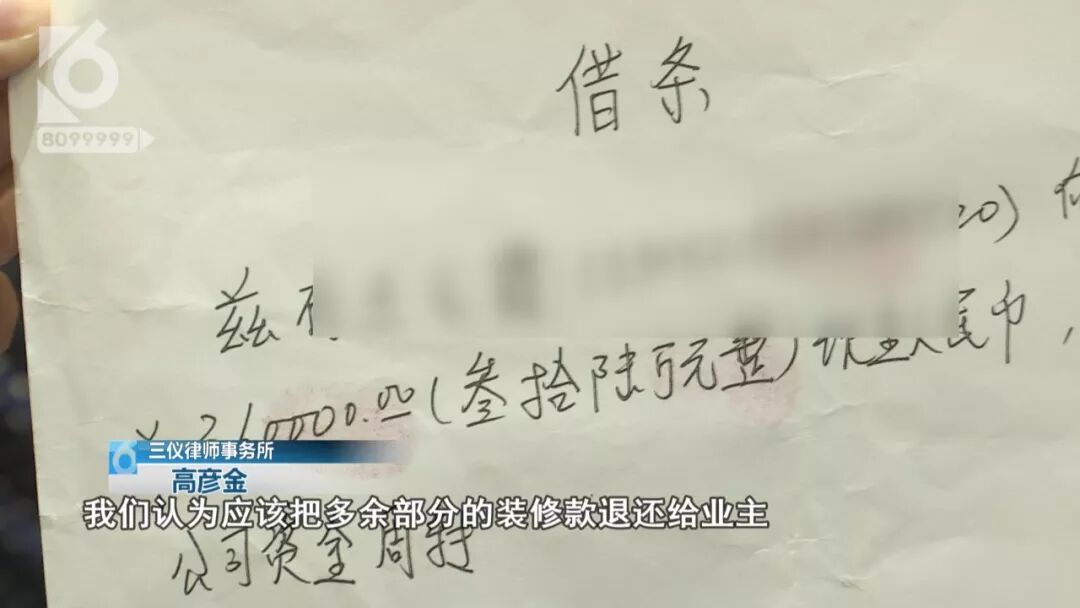 6
8099999
借条
20)
兹
¥360000.00(叁拾陆万元整)现金人民币,
6 三仪律师事务所
高彦金
我们认为应该把多余部分的装修款退还给业主
公司资金周转